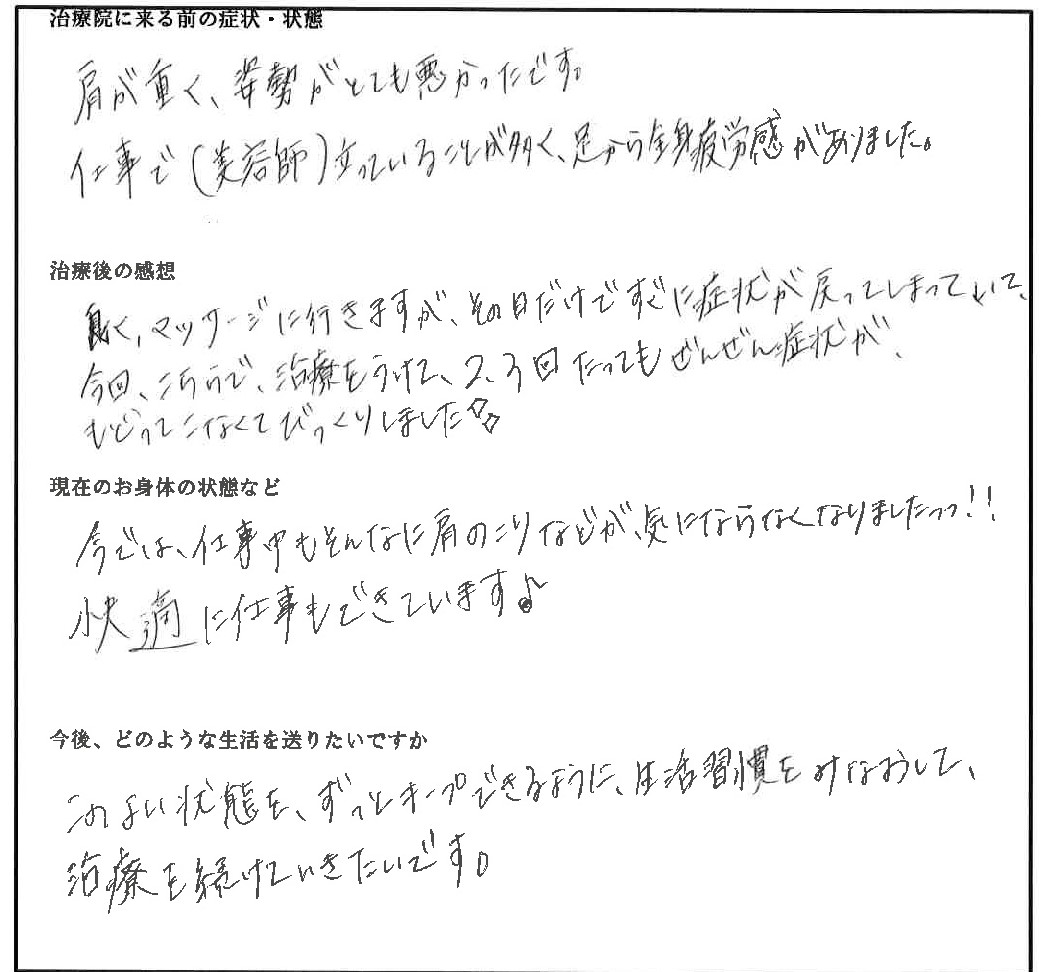 治療院に来る前の症状・状態
肩が重く、姿勢がとても悪かったです。
仕事で(美容師)立っていることが多く、足から全身疲労感がありました。
治療後の感想
良く、マッサージに行きますが、その日だけですぐに症状が戻ってしまっていて、
今回、こちらで、治療をうけて、2、3回たってもぜんぜん症状が、
もどってこなくてびっくりしました
現在のお身体の状態など
今では、仕事中もそんなに肩のこりなどが、気にならなくなりましたっっ!!
快適に仕事もできています♪
今後、どのような生活を送りたいですか
このよい状態を、ずっとキープできるように、生活習慣をみなおして、
治療を続けていきたいです。